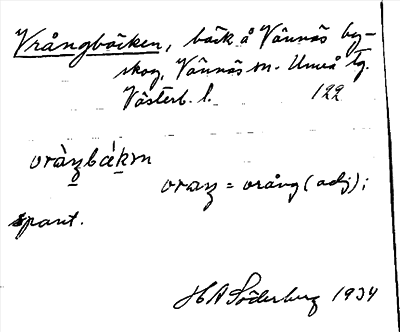 Vrångbäcken, bäck å Vännäs by-
skog, Vännäs sn. Umeå tg.
Västerb. l. 122
vràŋbák̲m
vraŋ = vrång (adj);
spant.
H A Söderberg 1934